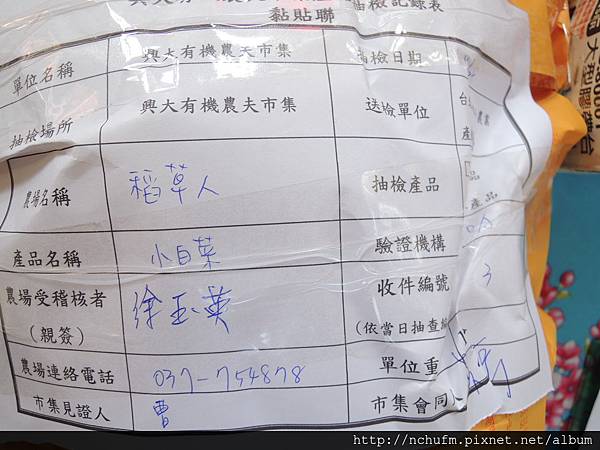 黏貼聯
抽檢記錄表
單位名稱 興大有機農夫市集 抽檢日期
抽檢場所 興大有機農夫市集 送檢單位
農場名稱 稻草人 抽檢產品
產品名稱 小白菜 驗證機構
農場受稽核者 徐玉英 收件編號 3
(親簽) (依當日抽查編
農場連絡電話 037-754878 單位重
市集見證人 曹 市集會同人
http://nchufm.pixnet.net/album